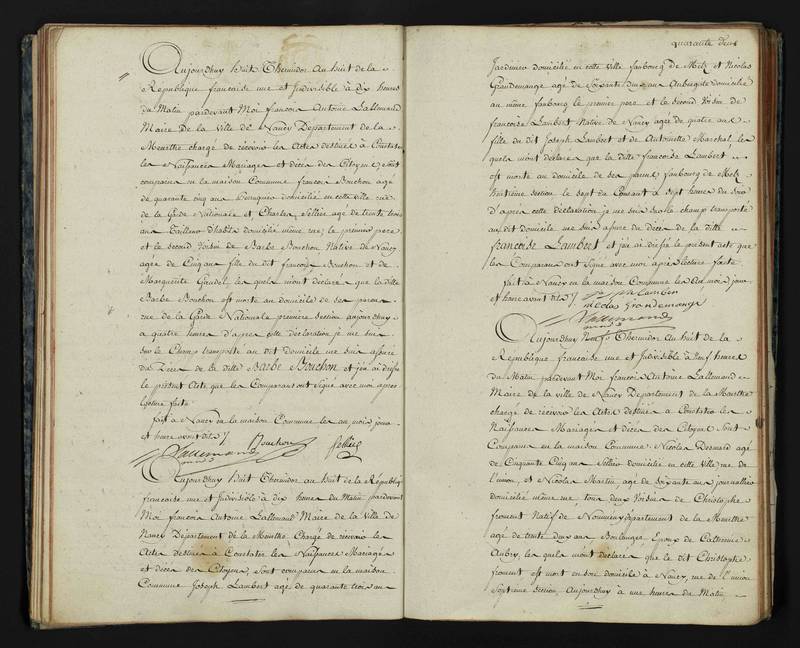 Aujourdhuy huit Thermidor An huit de la
République francaise une et Indivisible à dix heures
du Matin pardevant Moi francois Antoine Lallemand
Maire de la Ville de Nancy Departement de la
Meurthe chargé de recevoir les Actes destinés à Constater
les Naissances Mariages et décès des Citoyens, sont
comparus en la maison Commune francois Bouchon agé
de quarante cinq ans domicilié en cette ville rue
de la Garde Nationale et Charles Sellier agé de trente trois
ans Tailleur d'habits domicilié même rue; le premier pere
et le second Voisin de Barbe Bouchon Native de Nancy
agée de Cinq ans fille du dit francois Bouchon et de
Marguerite Gaudel, les quels m'ont déclaré que la ditte
Barbe Bouchon est morte au domicile de ses parens
rue de la Garde Nationale premiere Section aujourdhuy
a quatre heures d'apres cette déclaration je me suis
sur le Champ transporté au dit domicile me suis assuré
du Décès de la ditte Barbe Bouchon et j'en ai dressé
le présent Acte que les Comparans ont Signé avec moi apres
lecture faite
fait à Nancy en la maison Commune les an mois jour
et heure avant dits
Bouchon Sellier
Lallemand
Aujourdhuy huit Thermidor an huit de la Républiq
francaise une et Indivisible à dix heures du Matin pardevant
Moi francois Antoine Lallemand Maire de la Ville de
Nancy Departement de la Meurthe Chargé de recevoir les
Actes destinés à Constater les Naissances Mariages
et décès des Citoyens, sont comparus en la maison
Commune Joseph Lambert agé de quarante trois ans
quarante deux
Jardinier domicilié en cette Ville faubourg de Metz et Nicolas
Grandemange agé de Soixante deux ans Aubergiste domicilié
au même faubourg le premier pere et le second Voisin de
francoise Lambert Native de Nancy agée de quatre ans
fille du dit Joseph Lambert et de Antoinette Marchal les
quels mont déclaré que la ditte francoise Lambert
est morte au domicile de ses parens faubourg de Metz
huitieme section le sept du Courant à sept heures du soir
d'après cette déclaration je me suis sur le champ transporté
au dit domicile me suis assuré du décès de la ditte
francoise Lambert et j'en ai dressé le present acte que
les Comparans ont Signé avec moi après lecture faite
fait à Nancy en la maison Commune les An mois jour
et heure avant dits
joseph lambert
nicolas Grandemange
Lallemand
Aujourdhuy Neuf Thermidor An huit de la
République francaise une et Indivisible à Neuf heures
du Matin pardevant Moi francois Antoine Lallemand
Maire de la ville de Nancy Departement de la Meurthe
chargé de recevoir les Actes destinés à Constater les
Naissances Mariages et décès des Citoyens Sont
Comparus en la maison Commune Nicolas Desnard agé
de Cinquante Cinq ans Sellier domicilié en cette ville rue de
l'union et Nicolas Martin agé de soixante ans journallier
domicilié même rue tous deux Voisins de Christophe
froment Natif de Nommeny departement de la Meurthe
agé de trente deux ans Boulanger Epoux de Catherine
Aubry, les quels mont déclaré que le dit Christophe
froment est mort en son domicile a Nancy, rue de l'union
Septieme section, Aujourdhuy à une heure du Matin